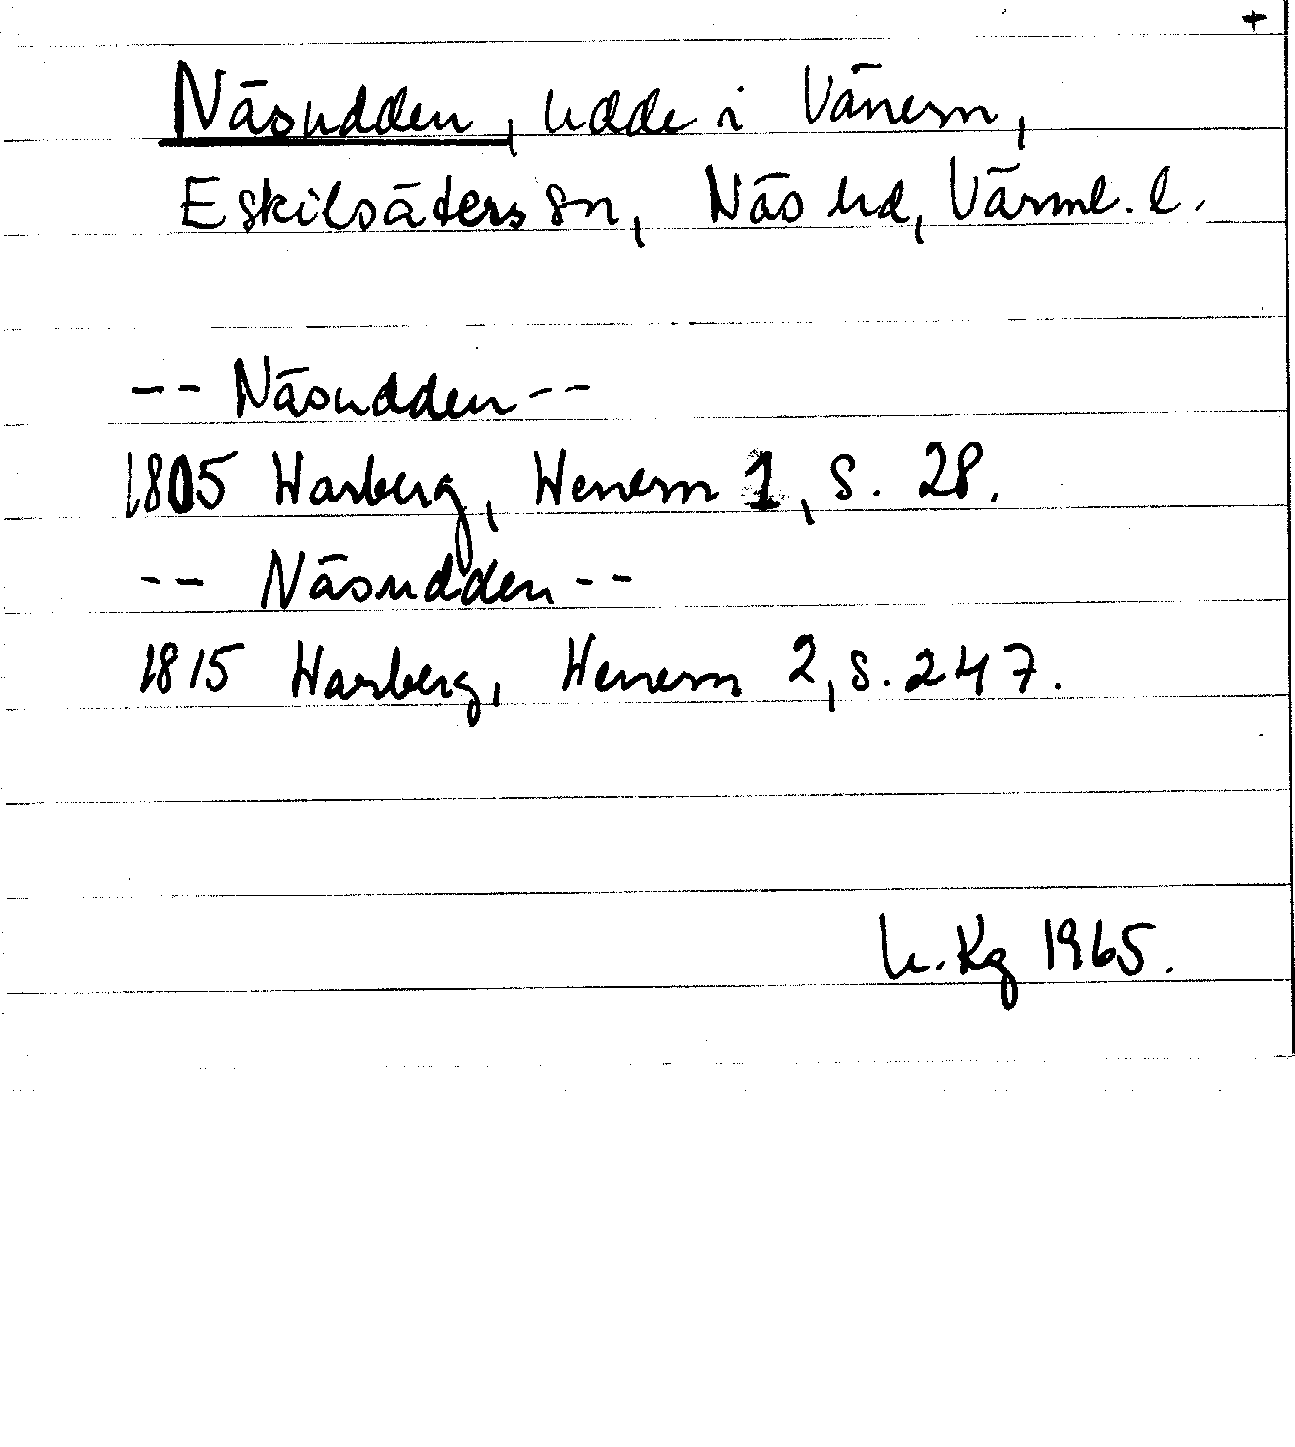 +
Näsudden, udde i Vänern,
Eskilsäters sn, Näs hd, Värml. l.
-- Näsudden --
1805 Warberg, Wenern 1, s. 28.
-- Näsudden --
1815 Warberg, Wenern 2, s. 247.
U. Kg 1965.